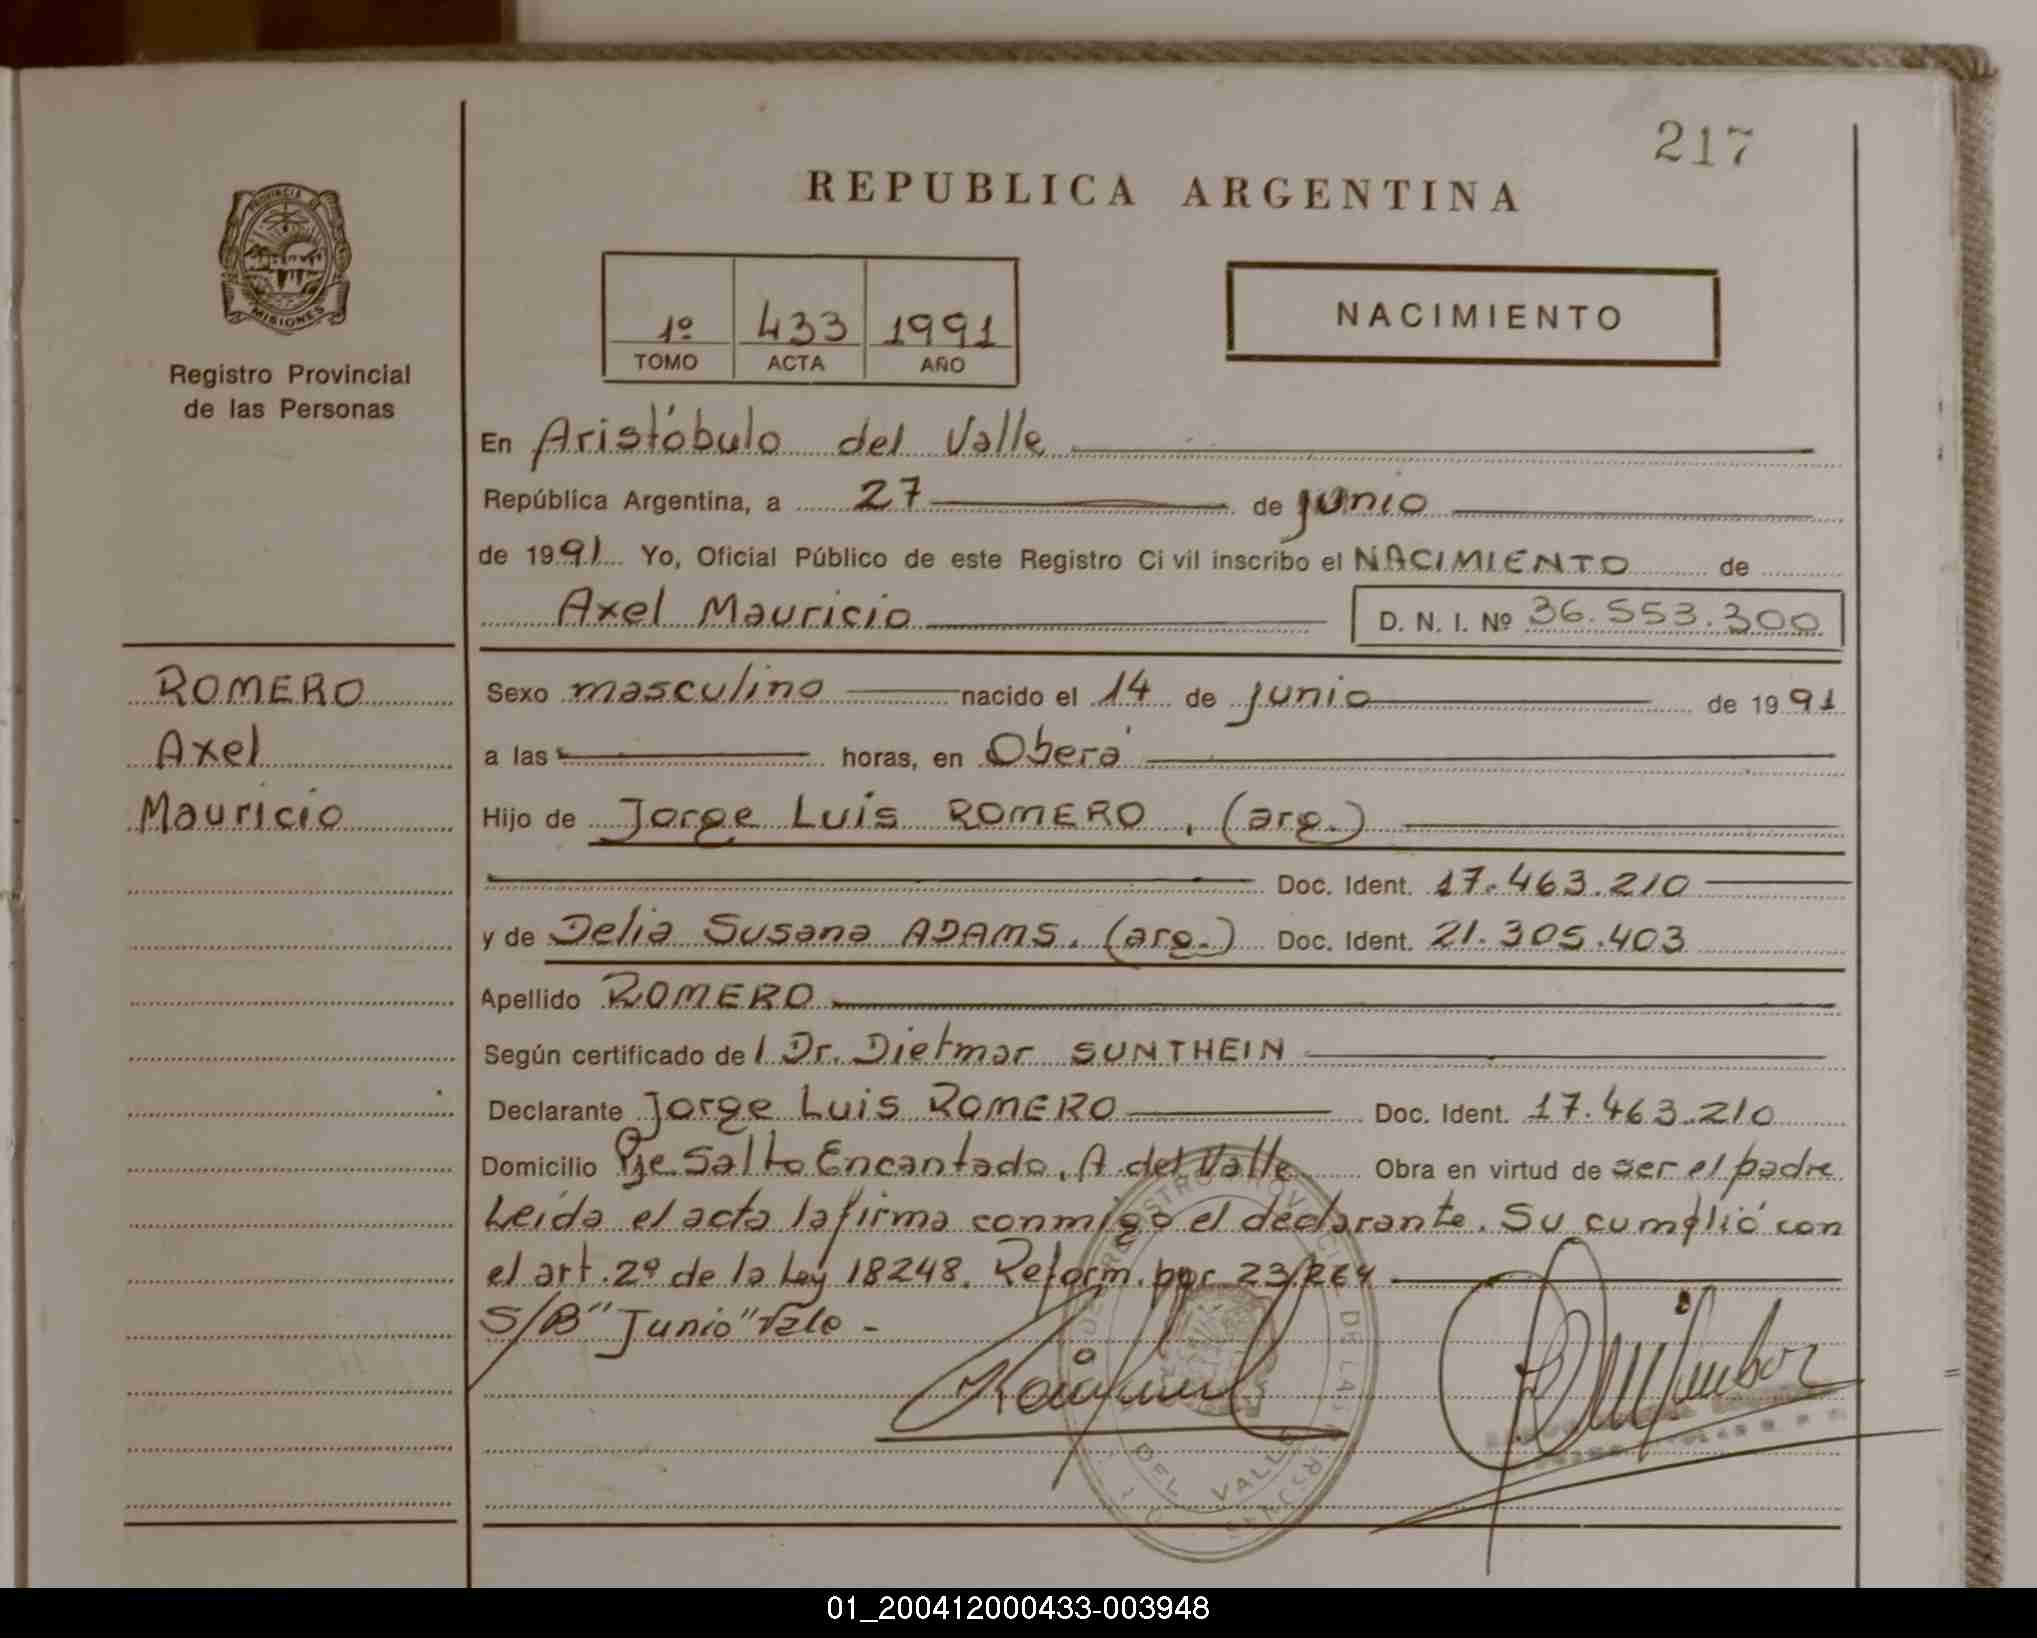 217
REPUBLICA ARGENTINA
PROVINCIA DE
MISIONES
Registro Provincial
de las Personas
1º 433 1991
TOMO ACTA AÑO
NACIMIENTO
En Aristóbulo del Valle
República Argentina, a 27 de junio
de 1991 Yo, Oficial Público de este Registro Civil inscribo el NACIMIENTO de
Axel Mauricio D. N. I. Nº 36.553.300
ROMERO
Axel
Mauricio
Sexo masculino nacido el 14 de junio de 1991
a las horas, en Oberá
Hijo de Jorge Luis ROMERO, (arg.)
Doc. Ident. 17.463.210
y de Delia Susana ADAMS. (arg.) Doc. Ident. 21.305.403
Apellido ROMERO
Según certificado del Dr. Dietmar SUNTHEIN
Declarante Jorge Luis ROMERO Doc. Ident. 17.463.210
Domicilio Pje. Salto Encantado, A. del Valle Obra en virtud de ser el padre
Leída el acta la firma conmigo el declarante. Su cumplió con
el art. 2º de la Ley 18248. Reform. por 23/264
S/B "Junio" Vale -
DEL VALLE
01_200412000433-003948